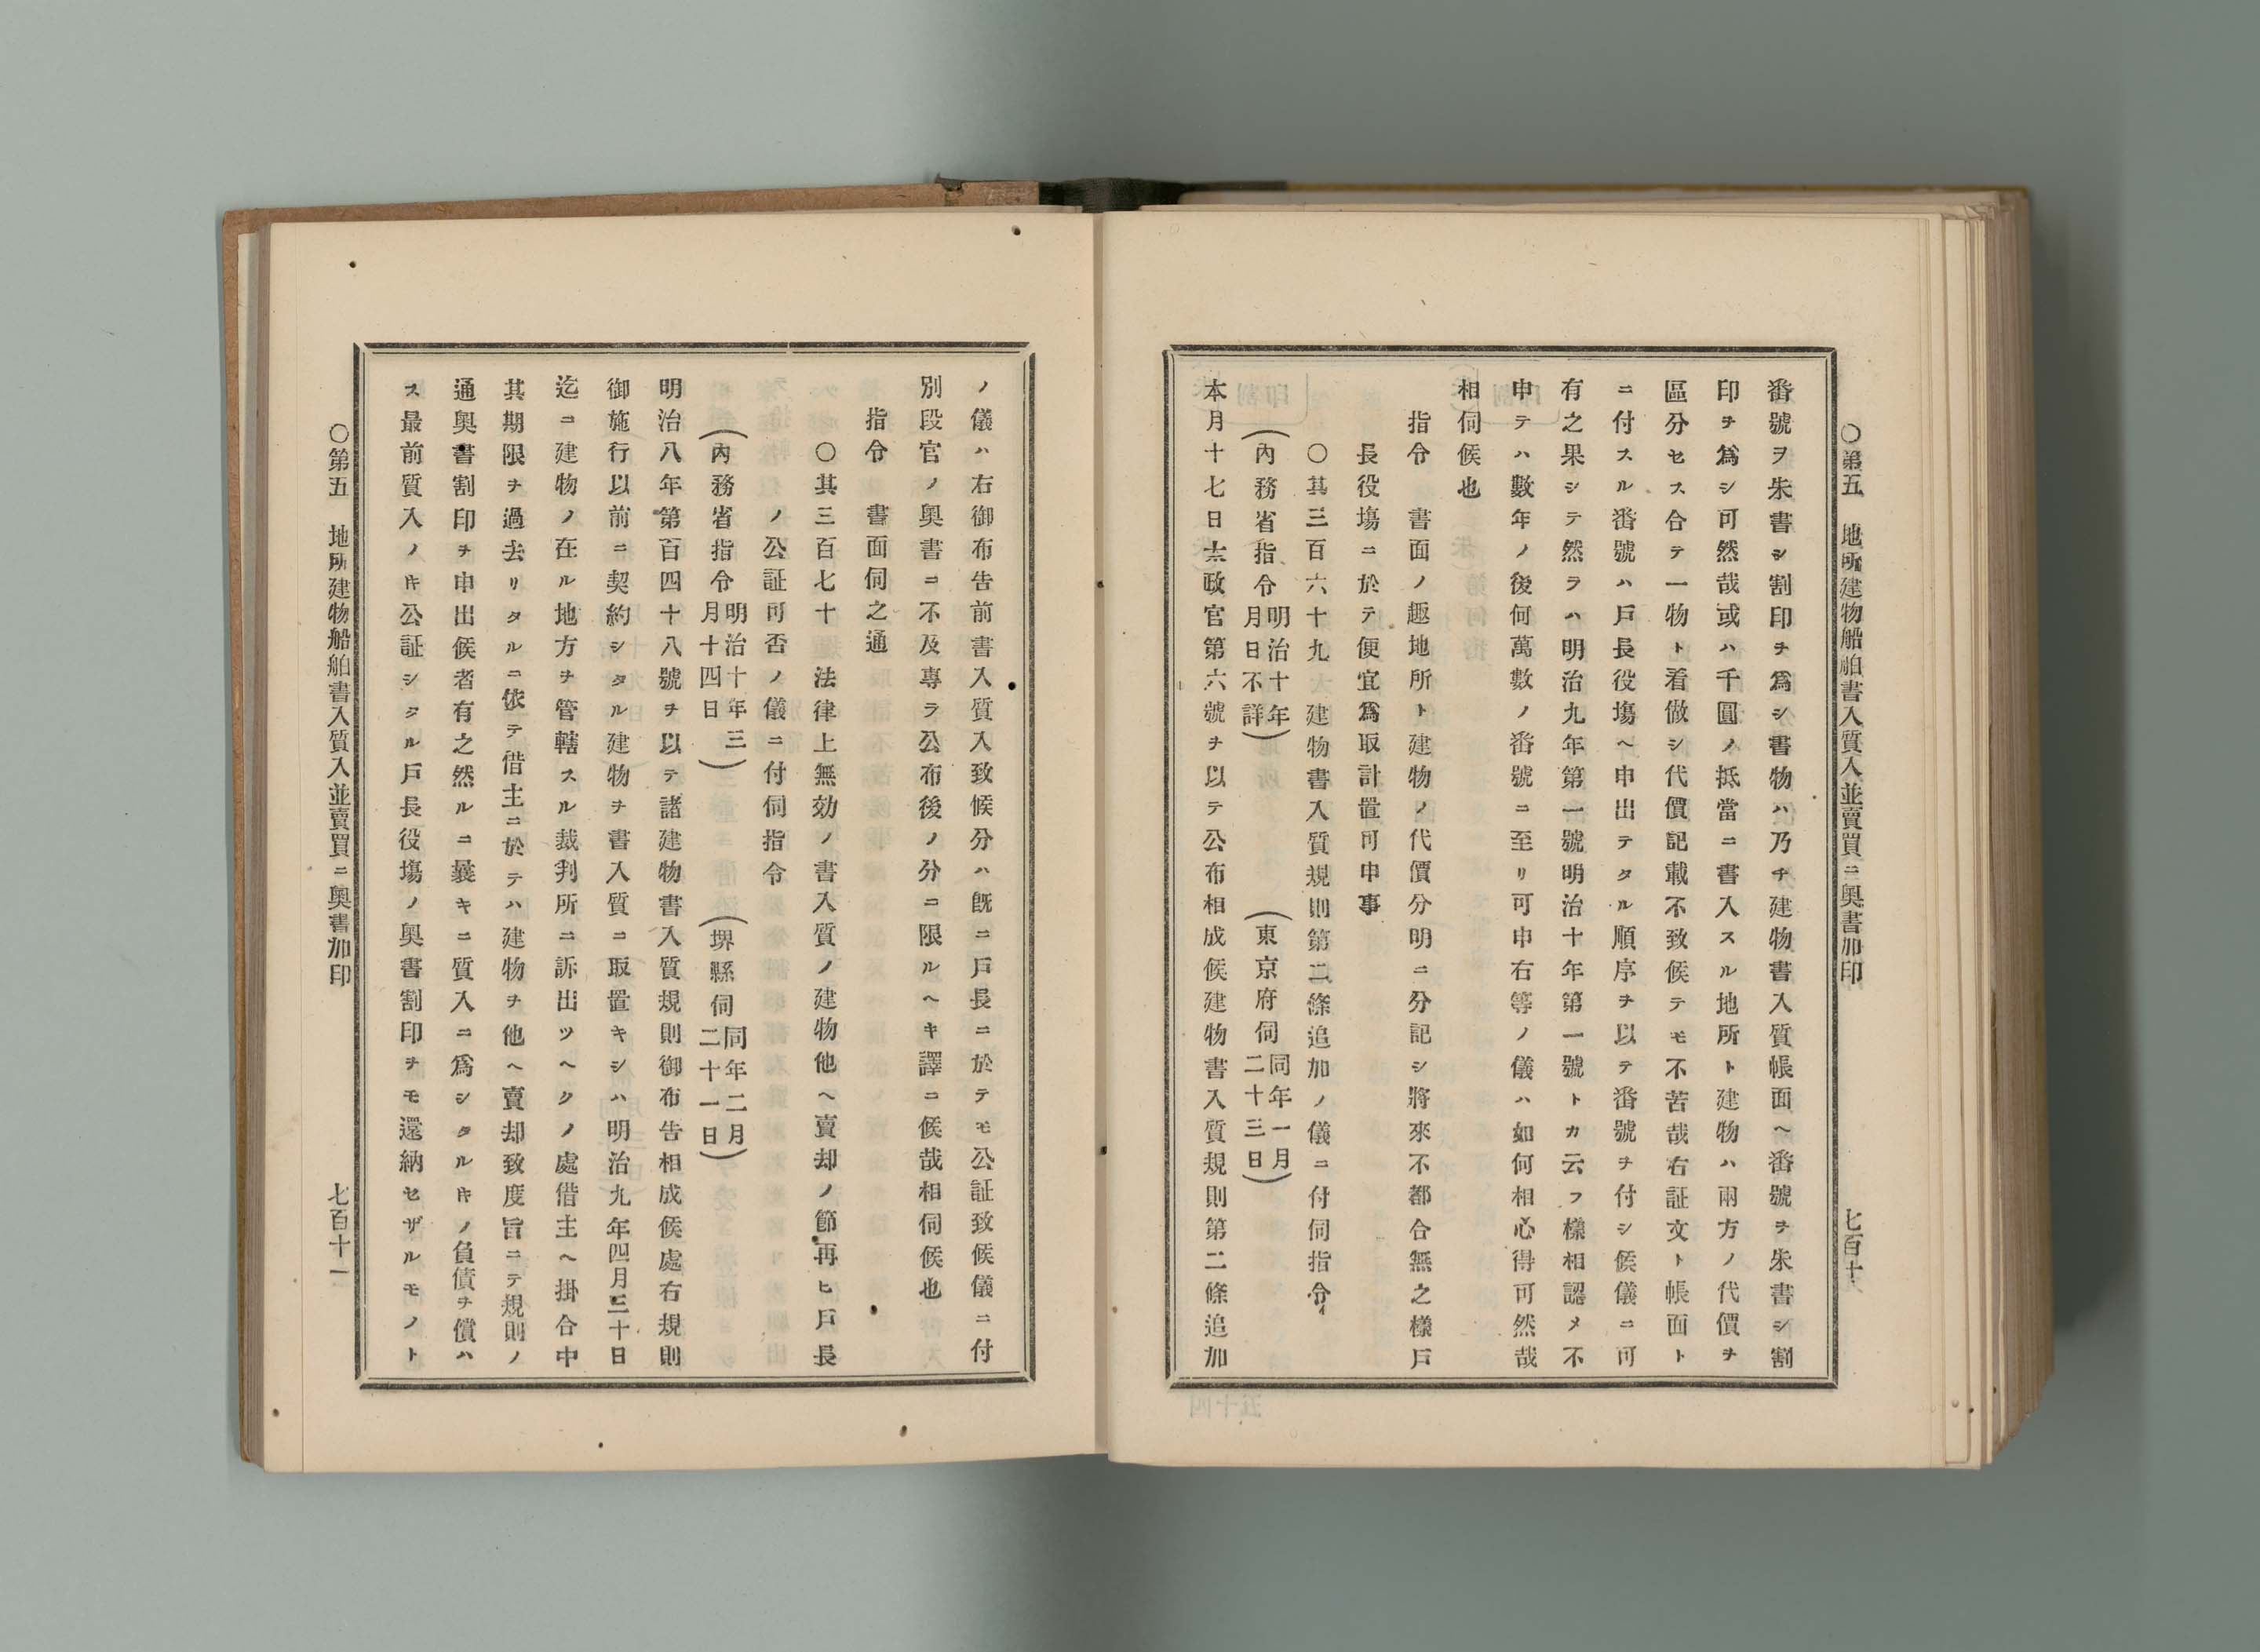 ○第五　地所建物船舶書入質入並賣買ニ奧書加印
七百十
番號ヲ朱書シ割印ヲ爲シ書物ハ乃チ建物書入質帳面ヘ番號ヲ朱書シ割
印ヲ爲シ可然哉或ハ千圓ノ抵當ニ書入スル地所ト建物ハ兩方ノ代價ヲ
區分セス合テ一物ト看做シ代價記載不致候テモ不苦哉右証文ト帳面ト
ニ付スル番號ハ戸長役塲ヘ申出テタル順序ヲ以テ番號ヲ付シ候儀ニ可
有之果シテ然ラハ明治九年第一號明治十年第一號トカ云フ樣相認メ不
申テハ數年ノ後何萬數ノ番號ニ至リ可申右等ノ儀ハ如何相心得可然哉
相伺候也
指令　書面ノ趣地所ト建物ノ代價分明ニ分記シ將來不都合無之樣戸
長役塲ニ於テ便宜爲取計置可申事
○其三百六十九　建物書入質規則第二條追加ノ儀ニ付伺指令
（內務省指令明治十年月日不詳）　（東京府伺同年一月二十三日）
本月十七日太政官第六號ヲ以テ公布相成候建物書入質規則第二條追加
ノ儀ハ右御布告前書入質入致候分ハ旣ニ戸長ニ於テモ公証致候儀ニ付
別段官ノ奧書ニ不及專ラ公布後ノ分ニ限ルヘキ譯ニ候哉相伺候也
指令　書面伺之通
○其三百七十　法律上無効ノ書入質ノ建物他ヘ賣却ノ節再ヒ戸長
ノ公証可否ノ儀ニ付伺指令
（內務省指令明治十年三月十四日）　（堺縣伺同年二月二十一日）
明治八年第百四十八號ヲ以テ諸建物書入質規則御布告相成候處右規則
御施行以前ニ契約シタル建物ヲ書入質ニ取置キシハ明治九年四月三十日
迄ニ建物ノ在ル地方ヲ管轄スル裁判所ニ訴出ツヘクノ處借主ヘ掛合中
其期限ヲ過去リタルニ依テ借主ニ於テハ建物ヲ他ヘ賣却致度旨ニテ規則ノ
通奧書割印ヲ申出候者有之然ルニ曩キニ質入ニ爲シタル𪜈ノ負債ヲ償ハ
ス最前質入ノ𪜈公証シタル戸長役塲ノ奧書割印ヲモ還納セザルモノト
○第五　地所建物船舶書入質入並賣買ニ奧書加印
七百十一